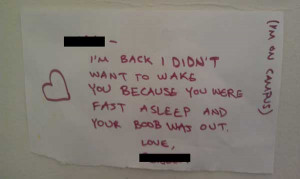 -
I'M BACK I DIDN'T
WANT TO WAKE
YOU BECAUSE YOU WERE
FAST ASLEEP AND
YOUR BOOB WAS OUT.
LOVE,
(I'M ON CAMPUS)